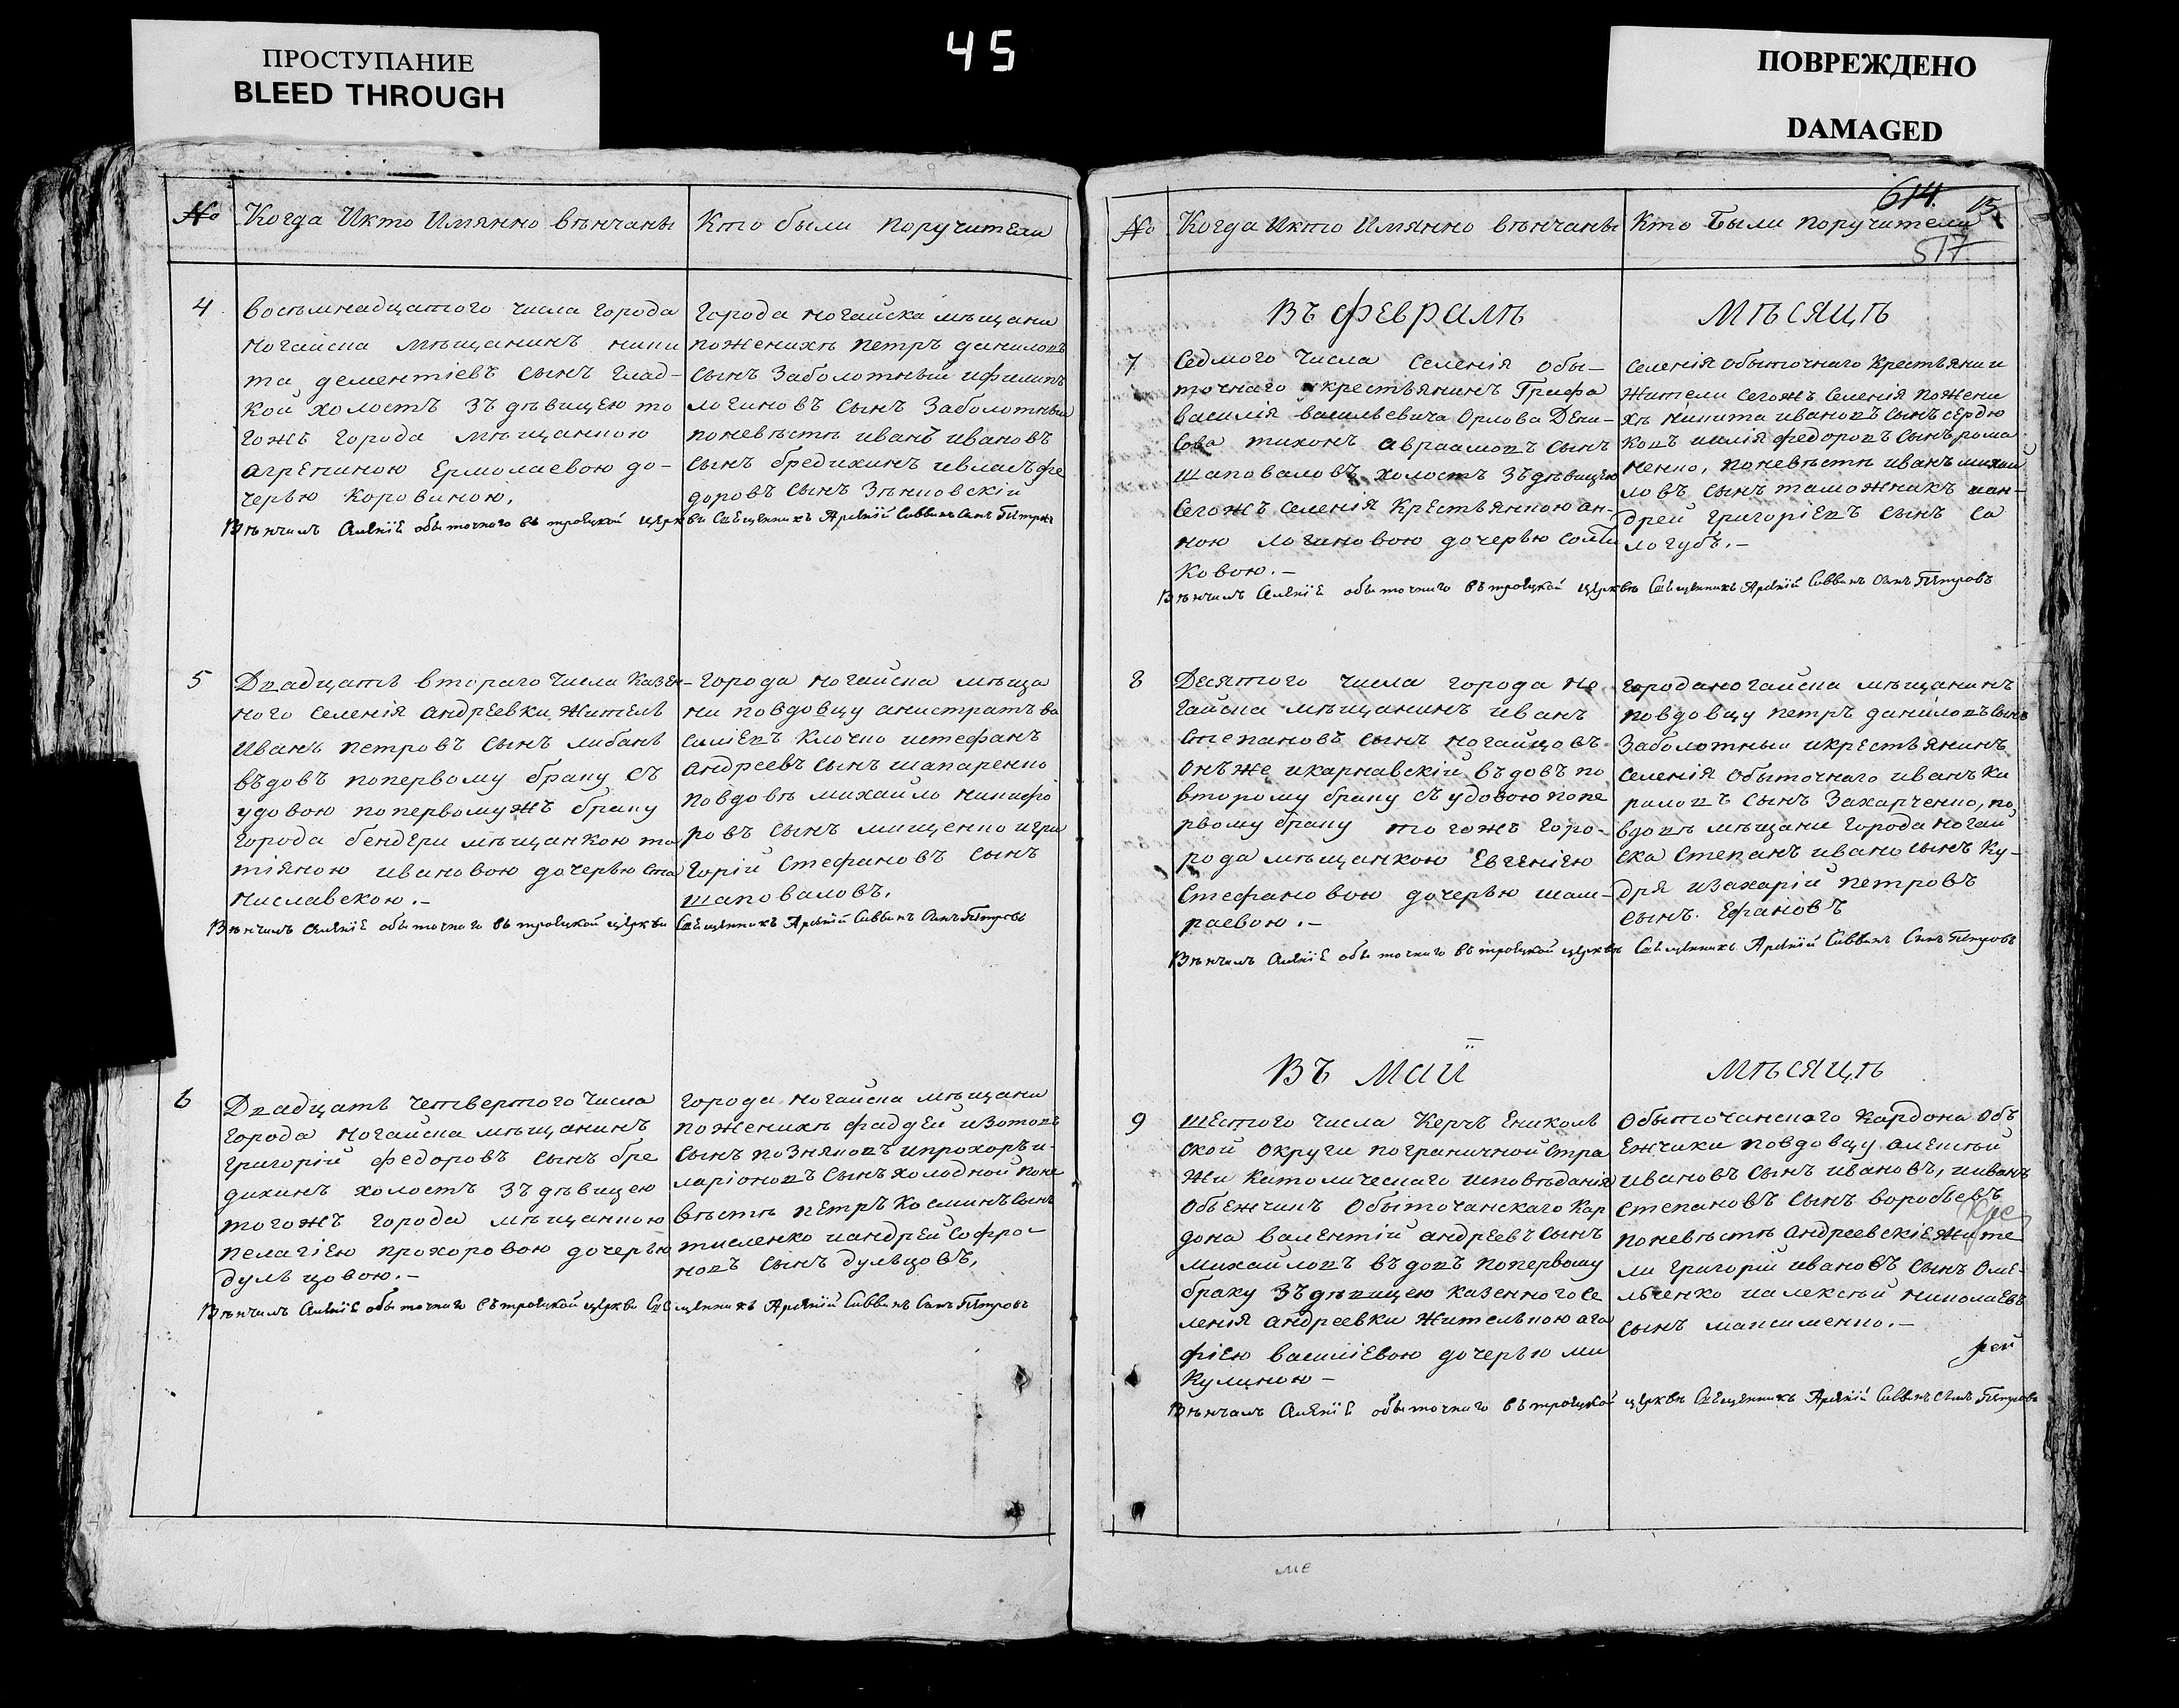 ПРОСТУПАНИЕ
BLEED THROUGH
45
ПОВРЕЖДЕНО
DAMAGED
№ Когда Икто Имянно вѣнчаны
Кто были поручители
4
восѣмнадцатого числа города
ногайска мѣщанинъ ники
та дементіевъ сынъ глад-
кой холостъ зъ дѣвицею то
гожъ города мѣщанкою
агрепиною Ермолаевою до-
черью коровиною.
города ногайска мѣщани
поженихѣ петръ даниловъ
сынъ заболотный ифилипъ
логиновъ сынъ заболотный
поневѣстѣ иванъ ивановъ
сынъ бредихинъ ивласъ фе
доровъ сынъ зѣнковскій
Вѣнчалъ Селеніе обыточного въ троецкой церкви Священникъ Арсеній Саввинъ Сынъ Петровъ
5
Двадцать втораго числа казен-
ного селенія андреевки житель
иванъ петровъ сынъ либанъ
вѣдовъ попервому браку съ
удовою попервомужъ браку
города бендери мѣщанкою та
тіяною ивановою дочерью ста
ниславскою.-
города ногайска мѣща
ни повдовцу анистратъ ва
силіевъ клочко истефанъ
андреевъ сынъ шапаренко
повдовѣ михайло никифо
ровъ сынъ мищенко игри
горій стефановъ сынъ
шаповаловъ.
Вѣнчалъ Селеніе обыточного въ троецкой церкви Священникъ Арсеній Саввинъ Сынъ Петровъ
6
Двадцать четвертого числа
города ногайска мѣщанинъ
григорій федоровъ сынъ бре
дихинъ холостъ зъ дѣвицею
тогожъ города мѣщанкою
пелагіею прохоровою дочерью
дульцовою.-
города ногайска мѣщани
поженихѣ фаддей изотовъ
сынъ позняковъ ипрохоръ и-
ларіоновъ сынъ холодной поне
вѣстѣ петръ косминъ сынъ
тисленко иандрей софро-
новъ сынъ дульцовъ,
Вѣнчалъ Селеніе обыточного въ троецкой церкви Священникъ Арсеній Саввинъ Сынъ Петровъ
614 15
517
№ Когда Икто Имянно вѣнчаны
Кто Были поручители
Въ февралѣ Мѣсяцѣ
7
Седмого числа селенія обы-
точнаго крестьянинъ Графа
василія васильевича Орлова Дени-
сова тихонъ авраамовъ сынъ
шаповаловъ холостъ зъ дѣвицею
Сегожъ селенія крестьянкою ан-
ною логиновою дочерью солни
ковою.-
Селенія обыточнаго крестьяни и
жители сегожъ селенія пожени
хѣ никита ивановъ сынъ сердю
ковъ иилія федоровъ сынъ рома
ненко, поневѣстѣ иванъ михаи
ловъ сынъ таможникъ иан-
дрей григоріевъ сынъ са
логубъ.-
Вѣнчалъ Селеніе обыточного въ троецкой церкви Священникъ Арсеній Саввинъ Сынъ Петровъ
8
Десятого числа города но
гайска мѣщанинъ иванъ
степановъ сынъ ногайцовъ
онъже икарнавскій вѣдовъ по
второму браку съ удовою попе
рвому браку тогожъ горо-
рода мѣщанкою евгеніею
стефановою дочерью шам-
раевою.-
городаногайска мѣщанинъ
повдовцу петръ даниловъ сынъ
заболотный икрестьянинъ
селенія обыточнаго иванъ ки
риловъ сынъ захарченко, по
вдовѣ мѣщани города ногай
ска степанъ ивано сынъ ку-
дря изахарій петровъ
сынъ Ефановъ
Вѣнчалъ Селеніе обыточного въ троецкой церкви Священникъ Арсеній Саввинъ Сынъ Петровъ
Въ Маи Мѣсяцѣ
9
Шестого числа Керчъ Ениколь
ской округи пограничной стра
жи католического исповѣданія
объежчикъ обыточанскаго кар
дона валентій андреевъ сынъ
михайловъ вѣдовъ попервому
браку зъ дѣвицею казенного се
ленія андреевки жителькою ага
фіею василіевою дочерью ми
кулиною -
Обыточанского кардона объ
ежчики повдовцу алексѣй
ивановъ сынъ ивановъ, ииванъ
степановъ сынъ воробьевъ
поневѣстѣ андреевскіе жите
ли григорій ивановъ сынъ оме-
льченко иалексѣй николаевъ
сынъ максименко.-
рей
Вѣнчалъ Селеніе обыточного въ троецкой церкви Священникъ Арсеній Саввинъ Сынъ Петровъ
ме